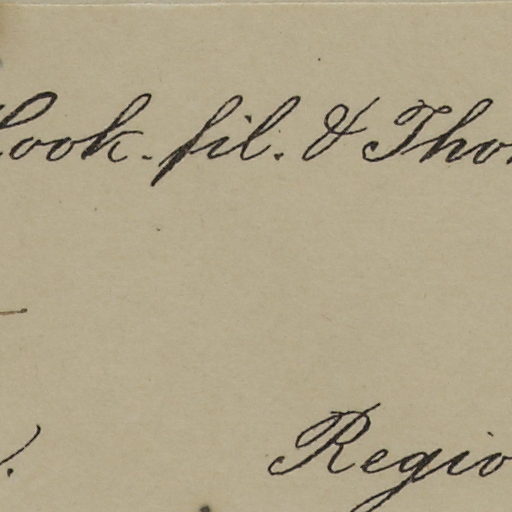 Hook. fil. & Thom
Regio